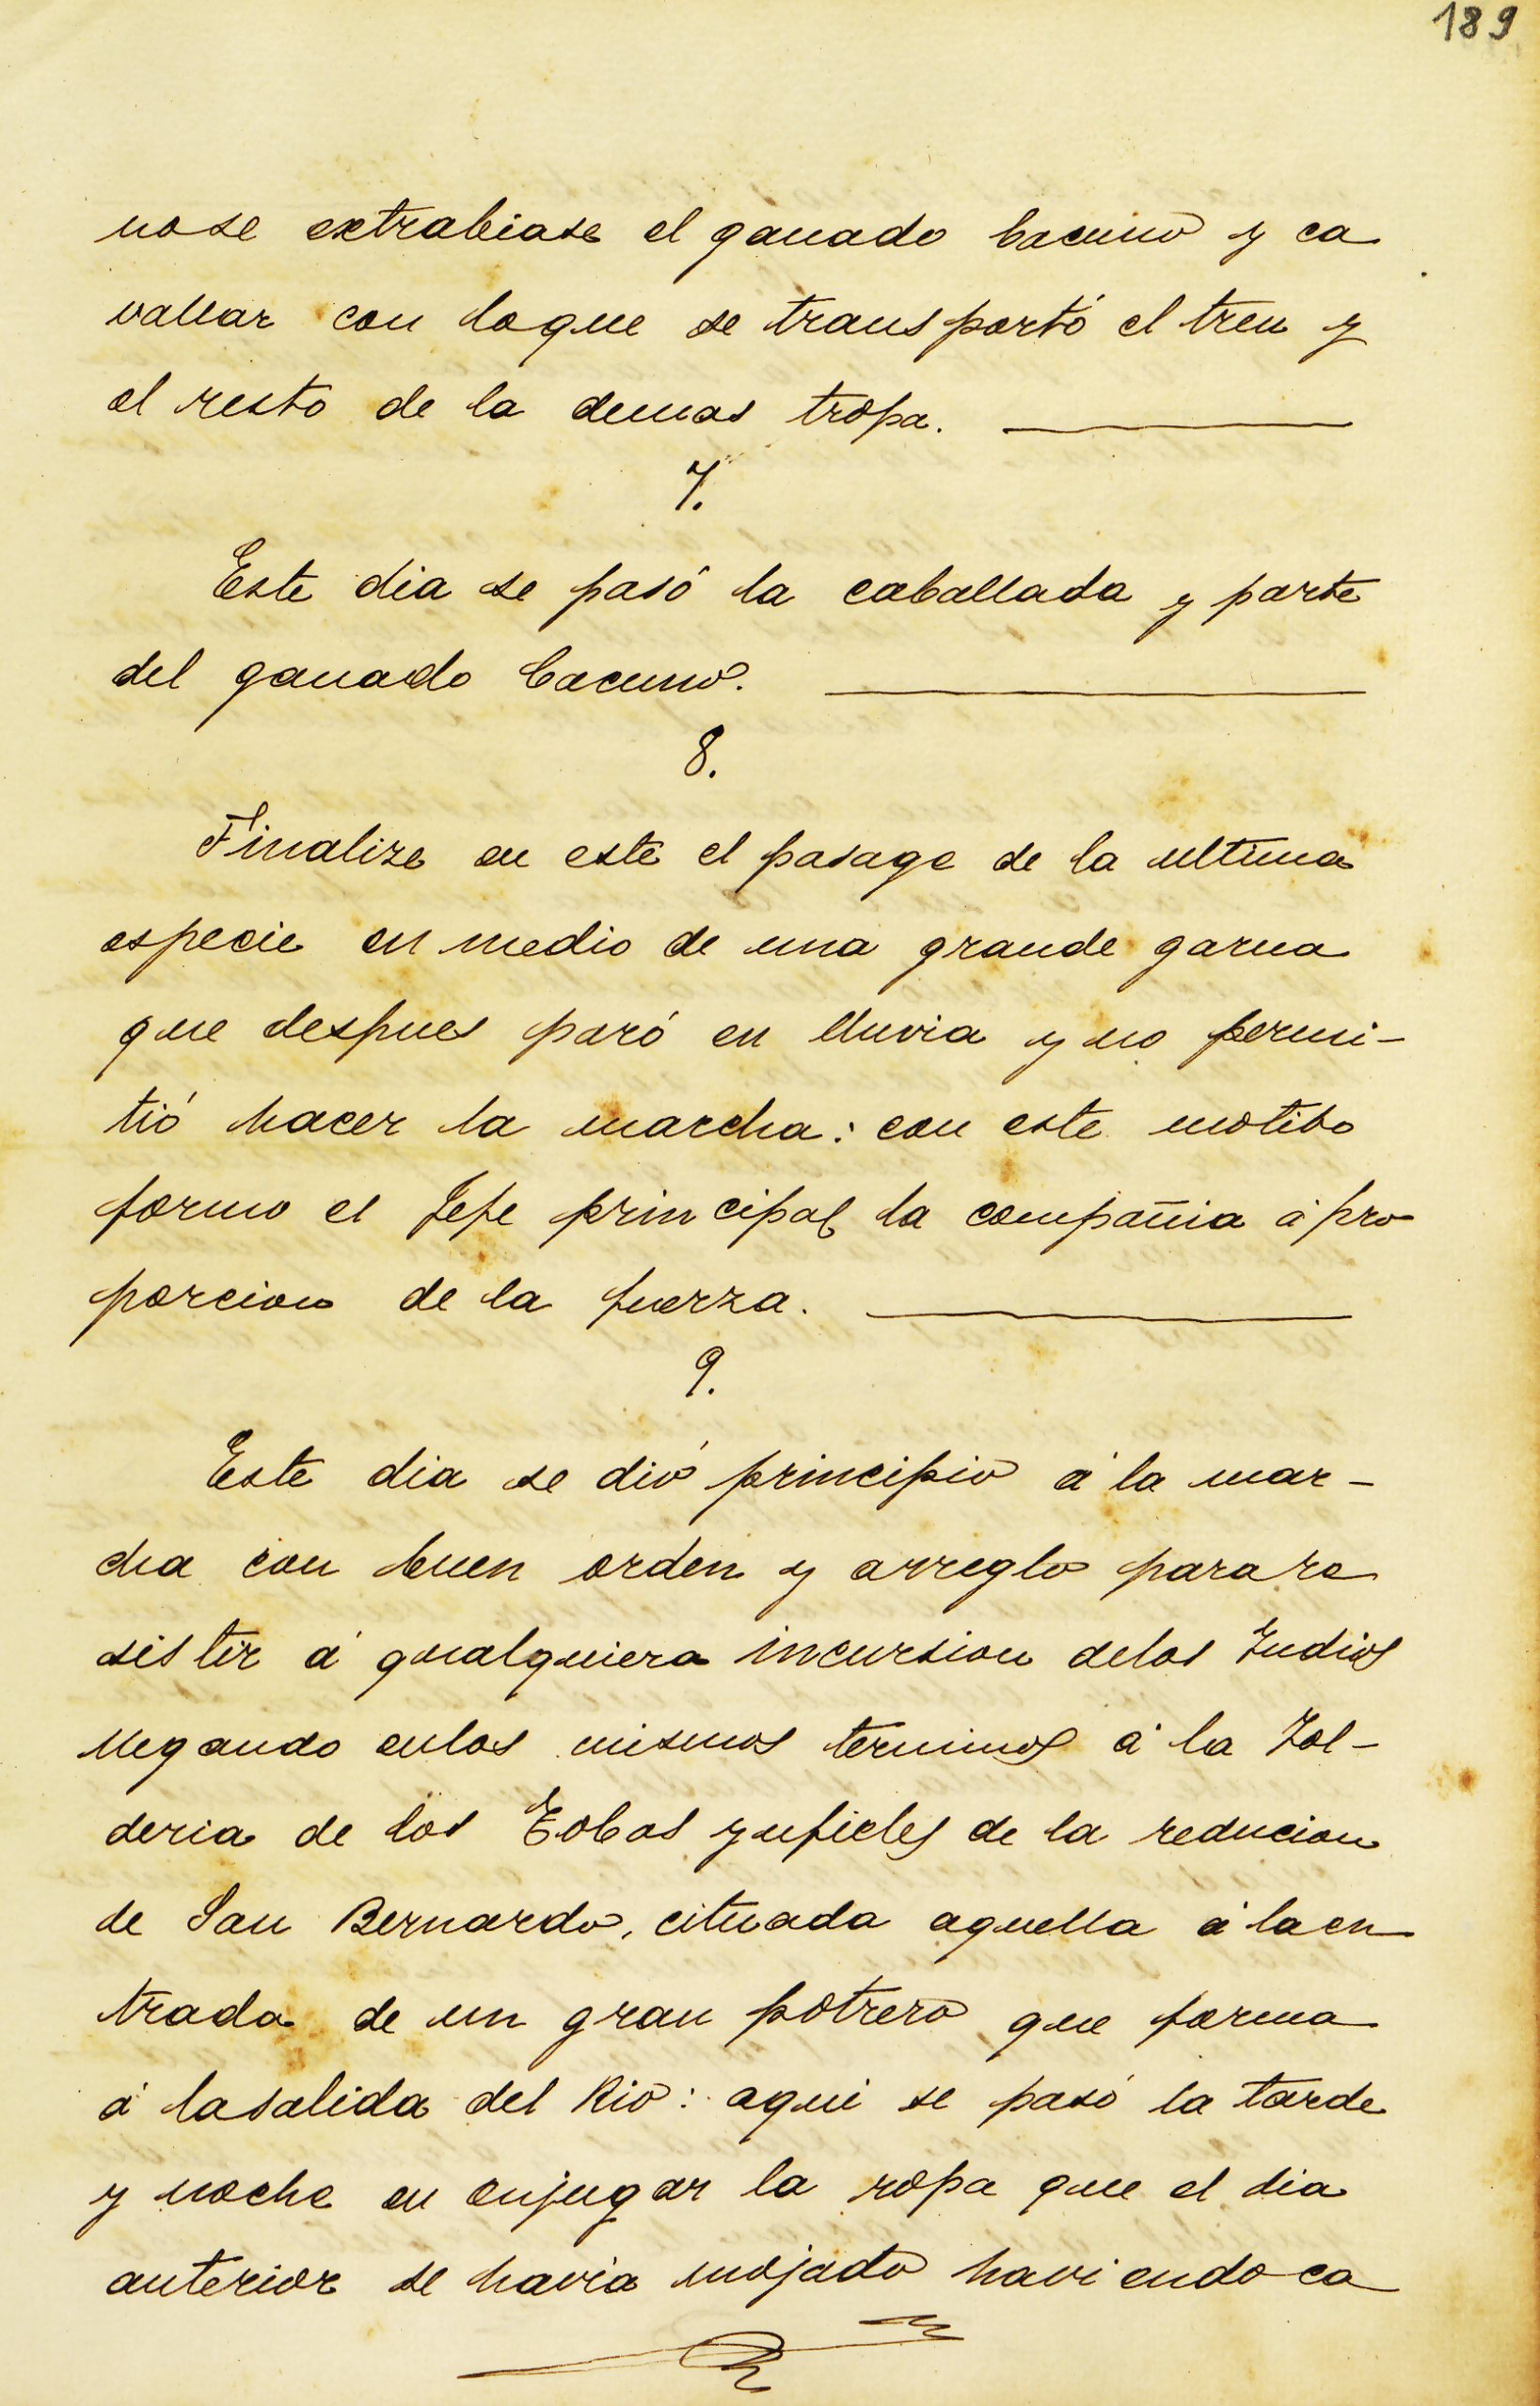 189
nose extrabiase el ganado bacuno y ca
vallar con loque se transportó el tren y
el resto de la demas tropa.
7.
Este dia se pasó la caballada y parte
del ganado bacuno.
8.
Finalize en este el pasage de la ultima
especie en medio de una grande garua
que despues paró en lluvia y no permi-
tió hacer la marcha: con este motibo
formo el Jefe principal la compañia á pro
porcion de la fuerza.
9.
Este dia se dió principio á la mar-
cha con buen orden y arreglo para re
sistir á qualquiera incursion delos Indios
llegando enlos mismos terminos á la Tol-
deria de los Tobas ynfieles de la reducion
de San Bernardo, cituada aquella á la en
trada de un gran potrero que forma
á lasalida del Rio: aqui se pasó la tarde
y noche en enjugar la ropa que el dia
anterior se havia mojado haviendo ca